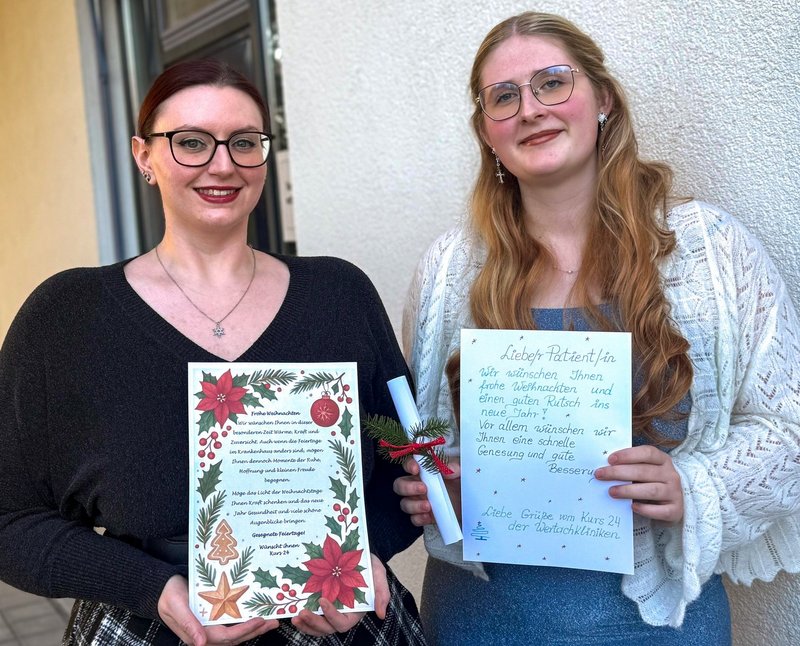 Frohe Weihnachten
Wir wünschen Ihnen in dieser
besonderen Zeit Wärme, Kraft und
Zuversicht. Auch wenn die Feiertage
im Krankenhaus anders sind, mögen
Ihnen dennoch Momente der Ruhe,
Hoffnung und kleinen Freude
begegnen.
Möge das Licht der Weihnachtstage
Ihnen Kraft schenken und das neue
Jahr Gesundheit und viele schöne
Augenblicke bringen.
Gesegnete Feiertage!
Wünscht Ihnen
Kurs 24
Liebe/r Patient/in
Wir wünschen Ihnen
frohe Weihnachten und
einen guten Rutsch ins
neue Jahr!
Vor allem wünschen wir
Ihnen eine schnelle
Genesung und gute
Besserung
Liebe Grüße vom Kurs 24
der Wertachkliniken